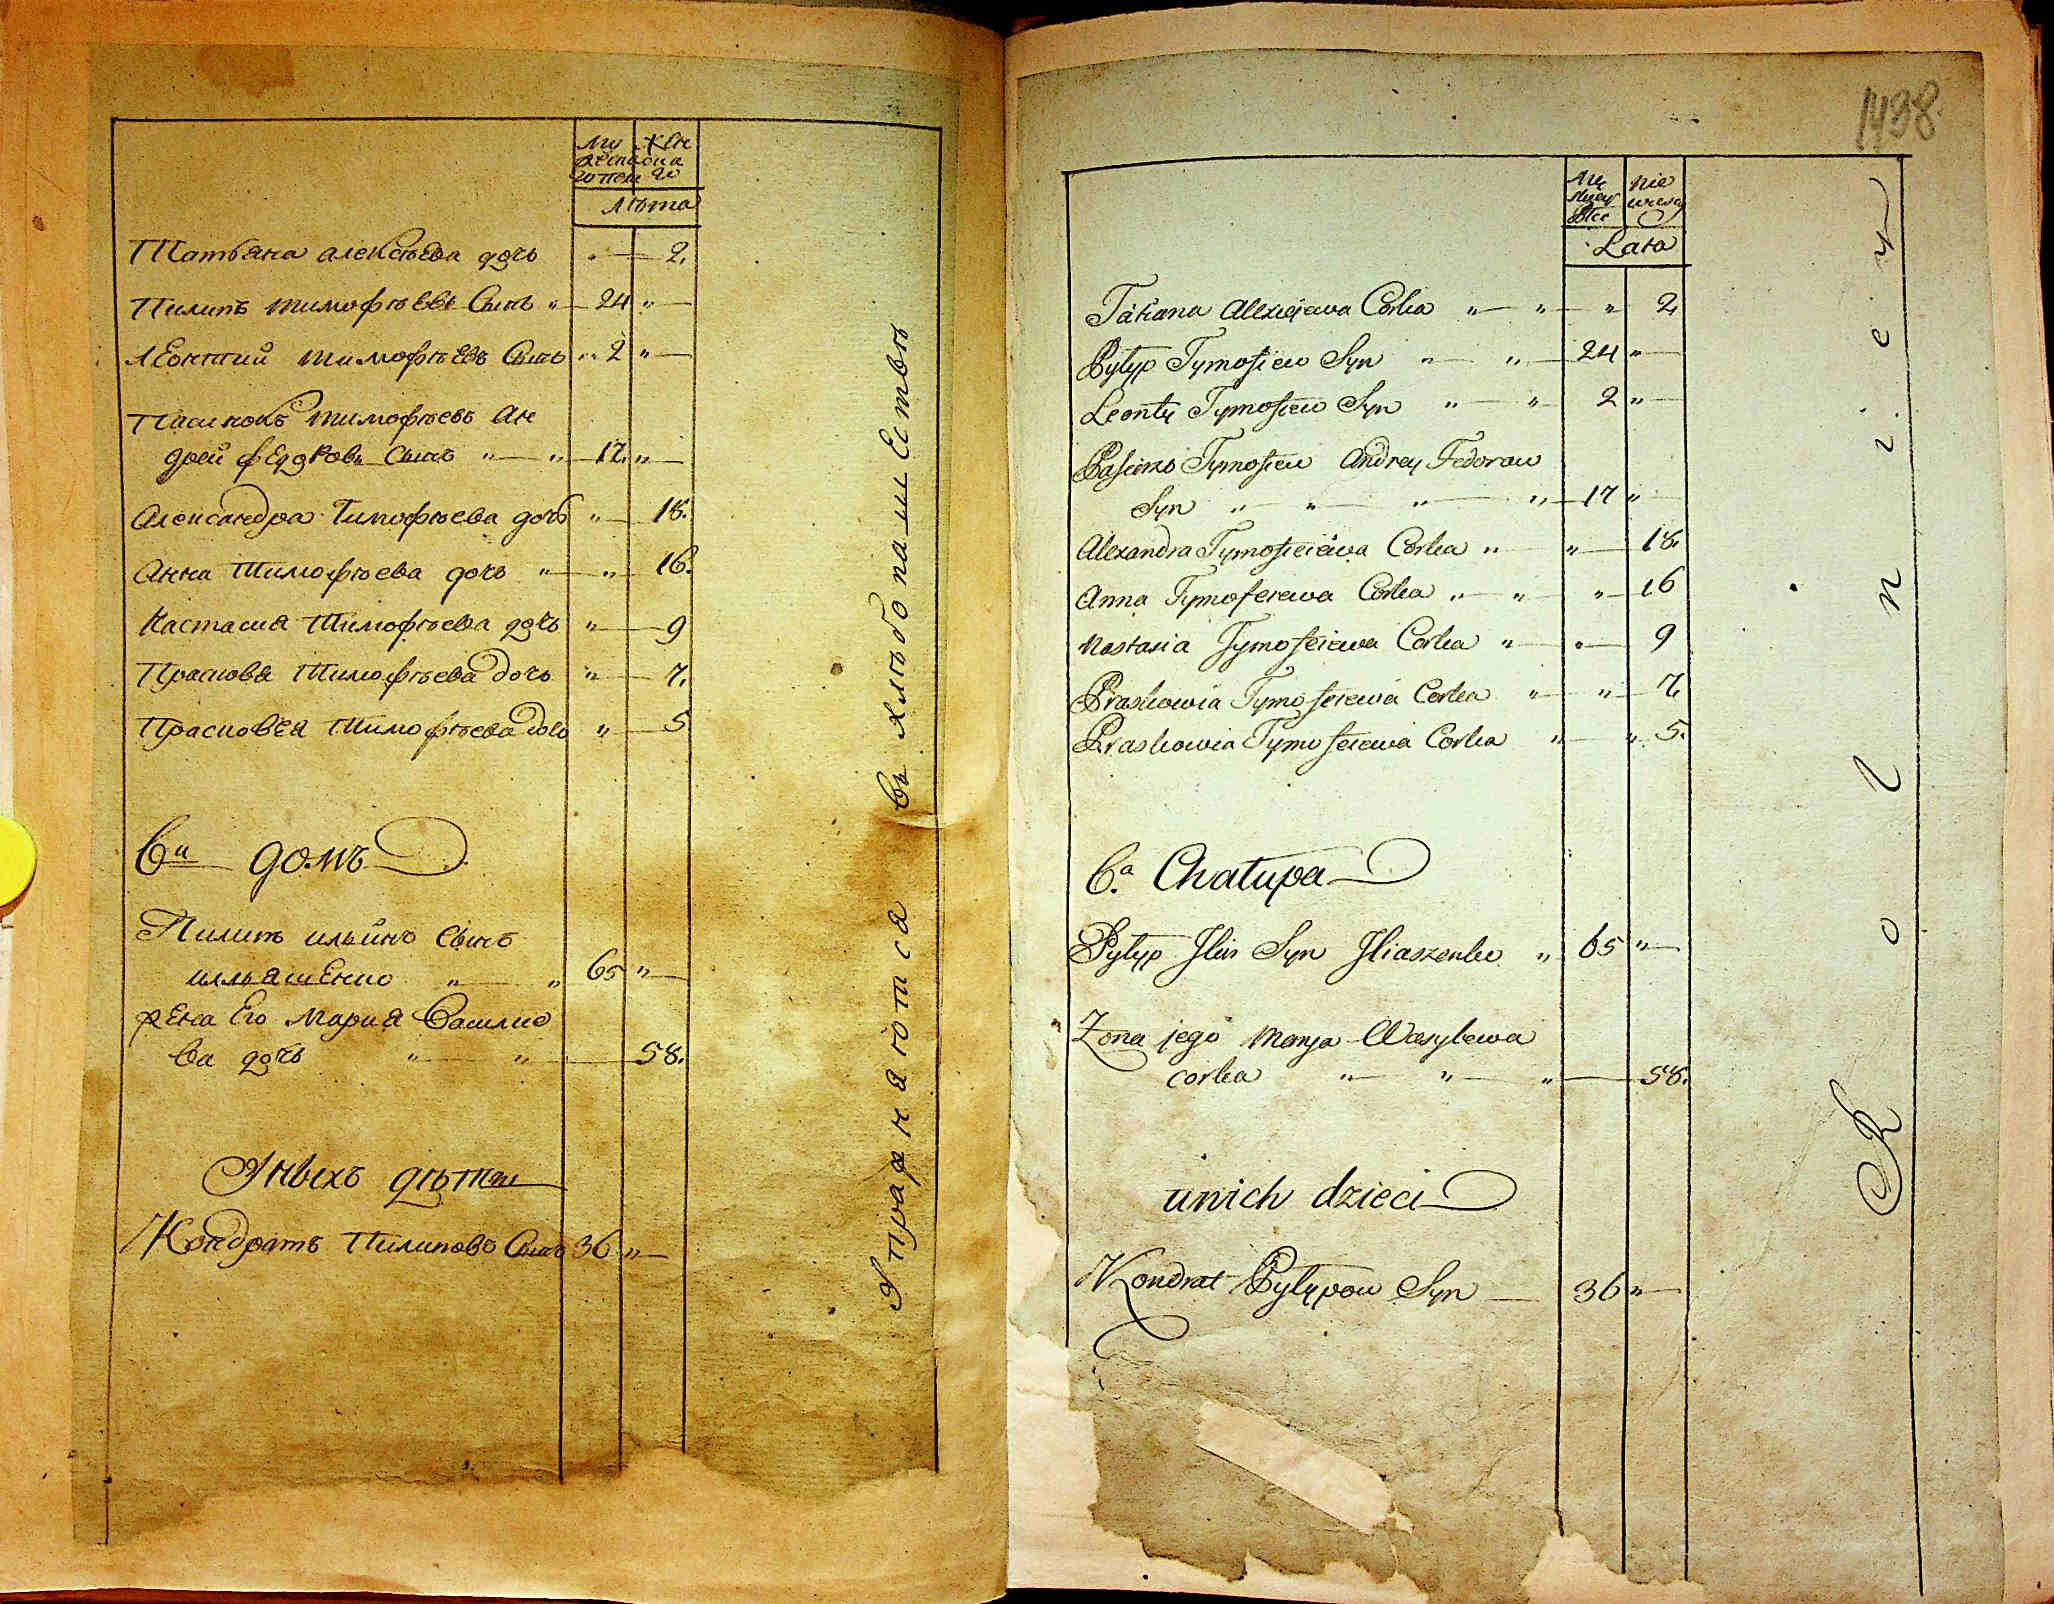 Му Жен
жеска ска
го пол го
Лѣта
Татьяна алексѣева дочь " 2.
Пилипъ тимофѣевъ Сынъ " 24 "
Леонтий тимофѣевъ Сынъ " 2 "
Пасинокъ тимофѣевъ Ан
дрей федоровъ Сынъ " " 17. "
Александра Тимофѣева дочь " 18.
Анна Тимофѣева дочь " " 16.
Настасия Тимофѣева дочь " 9
Прасковя Тимофѣева дочь " 7.
Прасковея Тимофѣева дочь " 5
6й домъ
Пилипъ ильинъ Сынъ
илляшенко " " 65 "
жена Его Мария Василие
ва дочь " " 58.
Уныхъ дѣтеи
Кондратъ Пилиповъ Сынъ 36 "
Упражняются въ хлѣбопашествѣ
1438
Mę nie
Lata
Tatiana Alexiejewa Corka " " " 2
Pylyp Tymofiew Syn " " 24 "
Leonty Tymofiew Syn " " 2 "
Pasierb Tymofiew Andrey Fedorow
Syn " " " " 17 "
Alexandra Tymofieiewa Corka " " 18.
Anna Tymofeiewa Corka " " " 16
Nastasia Tymofeiewa Corka " " 9
Praskowia Tymofeiewa Corka " " 7.
Praskowia Tymofeiewa Corka " " 5.
6.a Chatupa
Pylyp Ilin Syn Iliaszenko " 65 "
Zona jego Marya Wasylewa
corka " " " 58.
unich dzieci
Kondrat Pylypow Syn 36 "
Rolniey